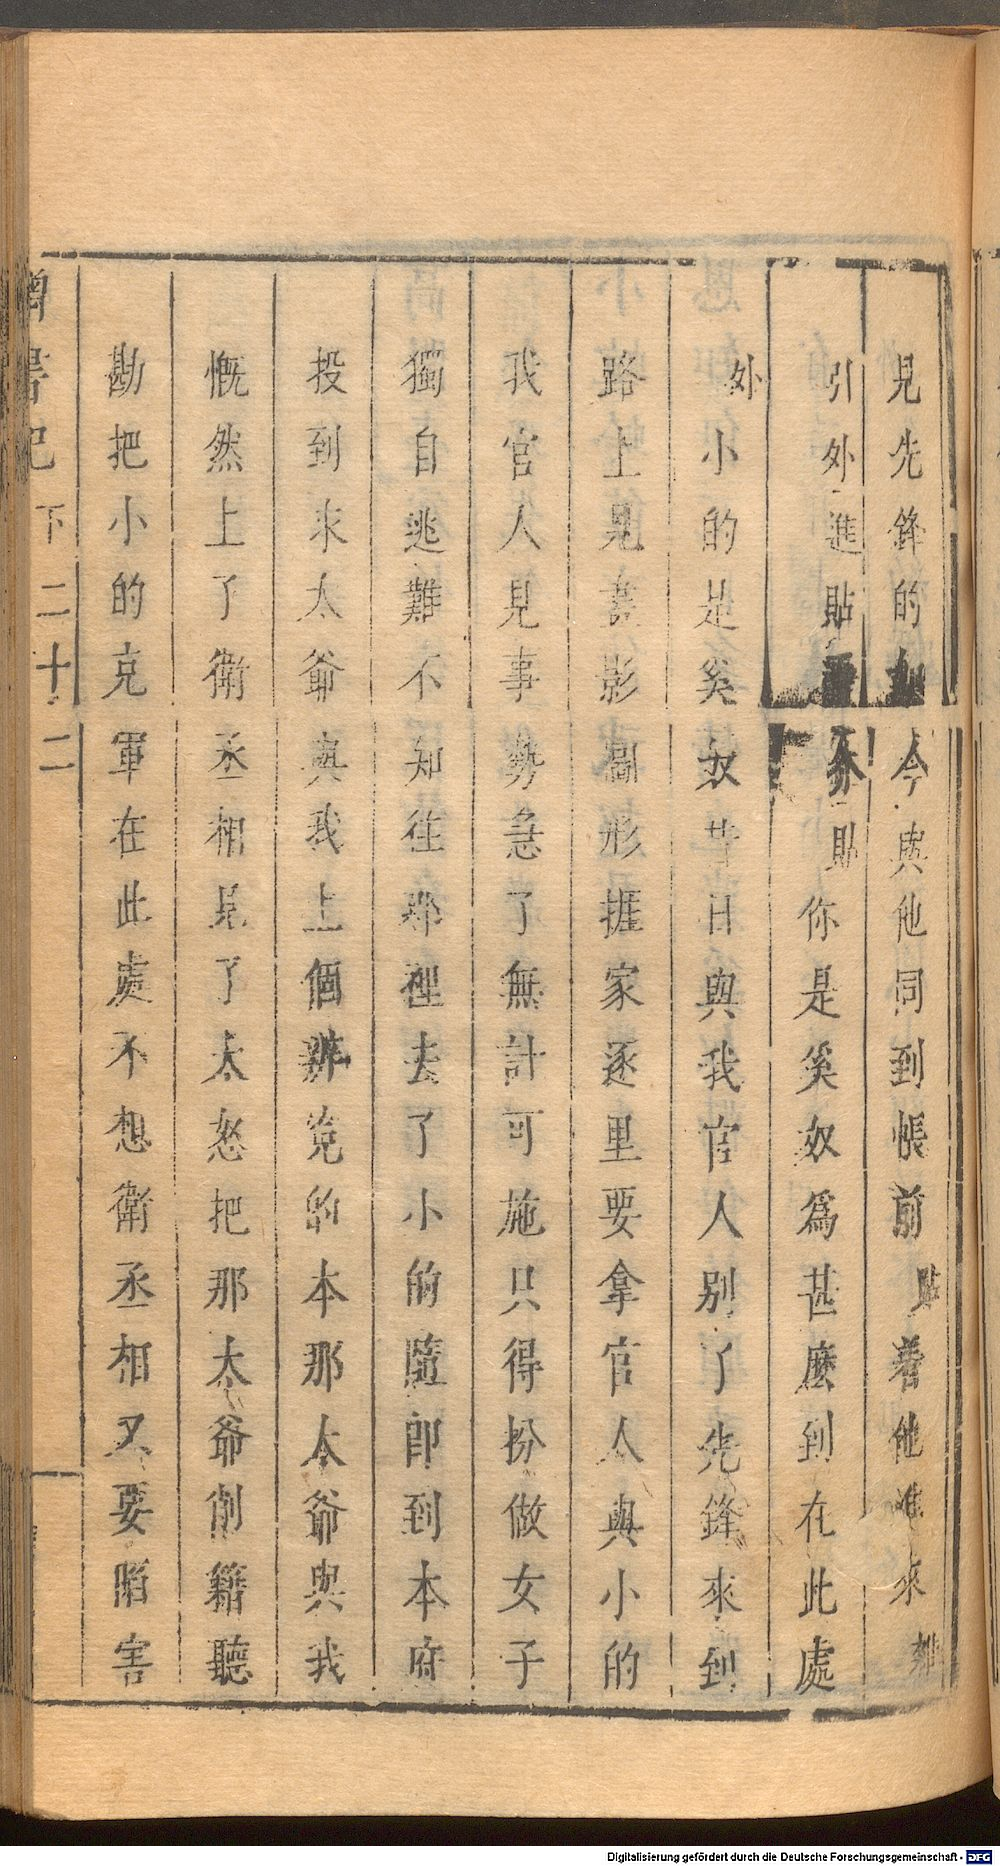 見先鋒的如今與他同到帳前貼着他進來雜
引外進貼介外貼你是奚奴爲甚麼到在此處
外小的是奚奴昔日與我官人別了先鋒來到
路上見畫影啚形捱家逐里要拿官人與小的
我官人見事勢急了無計可施只得扮做女子
獨自逃難不知往那裡去了小的隨即到本府
投到求太爺與我上個辨寃的本那太爺與我
慨然上了衛丞相見了大怒把那太爺削籍聽
勘把小的克軍在此處不想衛丞相又要陷害
書記 下 二十二
Digitalisierung gefördert durch die Deutsche Forschungsgemeinschaft - DFG